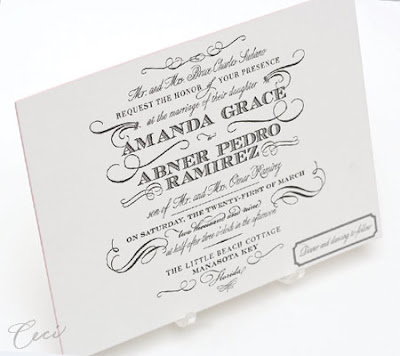 Mr. and Mrs. Bruce Charles Soriano
REQUEST THE HONOR of YOUR PRESENCE
at the marriage of their daughter
AMANDA GRACE
to
ABNER PEDRO
RAMIREZ
son of Mr. and Mrs. Omar Ramirez
ON SATURDAY, THE TWENTY-FIRST OF MARCH
two thousand and nine
at half after three o'clock in the afternoon
THE LITTLE BEACH COTTAGE
MANASOTA KEY
Florida
Dinner and dancing to follow
Ceci